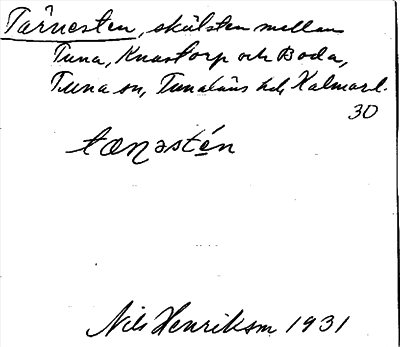 Tärnesten, skälsten mellan
Tuna, Knastorp och Boda,
Tuna sn, Tunaläns hd, Kalmar l.
30
tænəstén
Nils Henrikson 1931